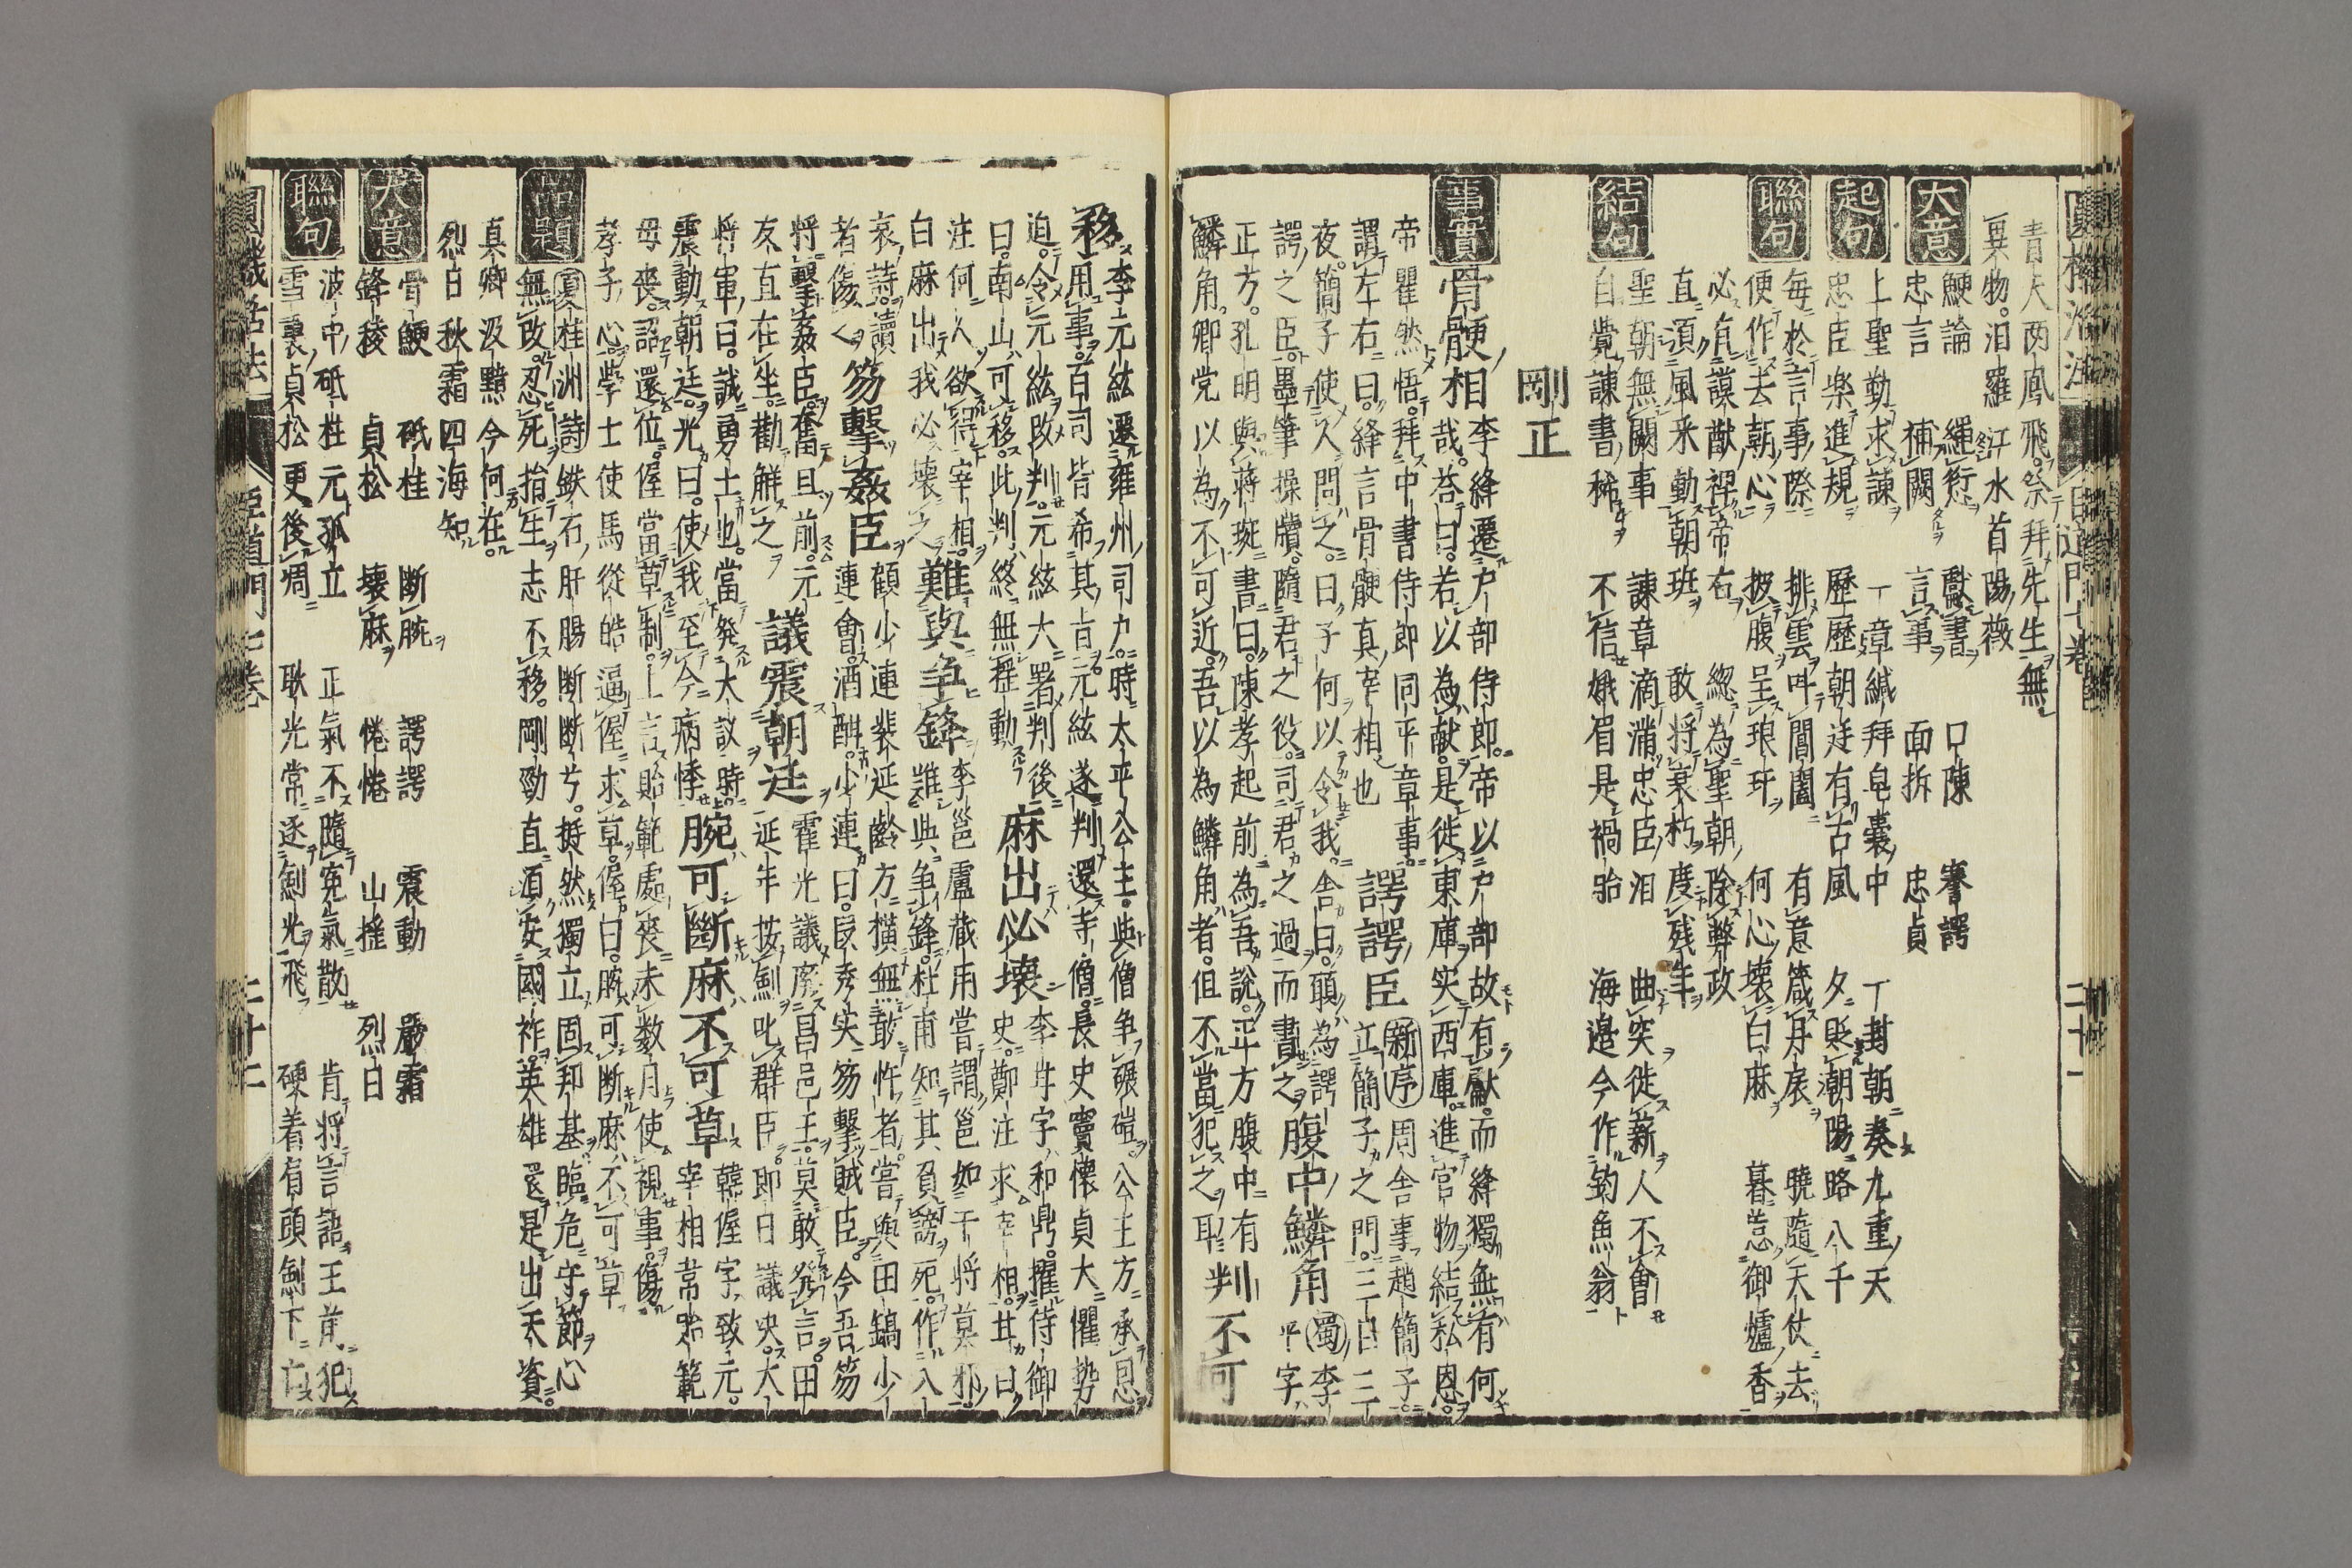 青天両鳳飛祭拜先生無
異物汨羅江水首陽薇
大意
鯁論　繩愆　獻書　口陳　謇諤
忠言　補闕　言事　面折　忠貞
起句
上聖勤求諫　一章緘拜皂囊中　一封朝奏九重天
忠臣楽進規　歷歷朝廷有古風　夕貶潮陽路八千
聯句
毎於言事際　排雲叫閶闔　有意箴丹扆　曉隨天仗去
便作去朝心　披腹呈琅玕　何心壊白麻　暮惹御爐香
必有謨猷裨帝右　縂為聖朝除弊政
直須風采動朝班　敢将衰朽度残年
結句
聖朝無闕事　諫章滴滿忠臣泪　曲突徙薪人不會
自覺諫書稀　不信娥眉是禍胎　海邉今作釣魚翁
剛正
事實
骨骾相　李絳遷戸部侍郎帝以戸部故有獻而絳獨無有何
哉荅曰若以為献是徙東庫実西庫進官物結私恩
帝瞿然悟拜中書侍郎同平章事　諤諤臣　新序　周舎事趙簡子
謂左右曰絳言骨骾真宰相也　立簡子之門三日三
夜簡子使人問之曰子何以令我舎曰願為諤　腹中鱗角　蜀李
諤之臣墨筆操牘隨君之役司君之過而書之　平字
正方孔明與蒋琬書曰陳孝起前為吾說正方腹中有
鱗角卿党以為不可近吾以為鱗角者但不當犯之耳　判不可
移　李元紘遷雍州司戸時太平公主與僧争碾磑公主方承恩
用事百司皆希其旨元紘遂判還寺僧長史竇懐貞大懼勢
迫令元紘改判元紘大署判後　麻出必壊　李甘字和鼎擢侍御
曰南山可移此判終無揺動　史鄭注求宰相甘曰
注何人欲得宰相　難與争鋒　李邕盧蔵用嘗謂邕如干将莫邪
白麻出我必壊之　誰與争鋒杜甫知其負謗死作八
哀詩讀　顧少連裴延齡方橫無敢忤者嘗與田鎬少
者傷之　笏擊姦臣　連會酒酣少連曰段秀実笏擊賊臣今吾笏
将擊姦臣奮且前元　議震朝廷　霍光議廃昌邑王莫敢發言田
友直在坐勸解之　延年按劍叱群臣即日議决大
将軍曰誠勇士也當發大議時　腕可断麻不可草　韓偓字致元
震動朝廷光曰使我至今病悸　宰相常貽範
母喪詔還位偓當草制上言貽範處喪未数月使視事傷
孝子心學士使馬從皓逼偓求草偓曰腕可断麻不可草
品題
夏桂洲詩　鉄石肝腸断断兮挺然獨立固邦基臨危守節心
無改忍死捐生志不移剛勁直須安國祚英雄還是出天資
真卿汲黯今何在
烈日秋霜四海知
大意
骨鯁　砥柱　断腕　諤諤　震動　嚴霜
鋒稜　貞松　壊麻　惓惓　山揺　烈日
聯句
波中砥柱元孤立　正氣不隨寃氣散　肯将言語王前犯
雪裏貞松更後凋　耿光常逐劍光飛　硬着有頭劍下亡